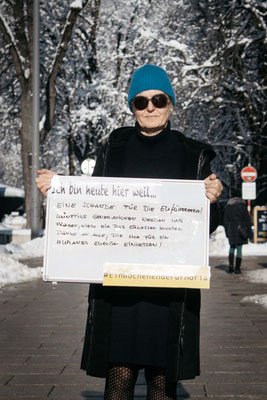 Ich bin heute hier weil...
EINE SCHANDE FÜR DIE EU
KÜNFTIGE GENERATIONEN WERDEN UNS
FRAGEN, WIESO WIR DAS ZULASSEN KONNTEN
DANKE AN ALLE, DIE SICH FÜR EIN
HUMANES EUROPA EINSETZEN!
#einwochenendefürmoria